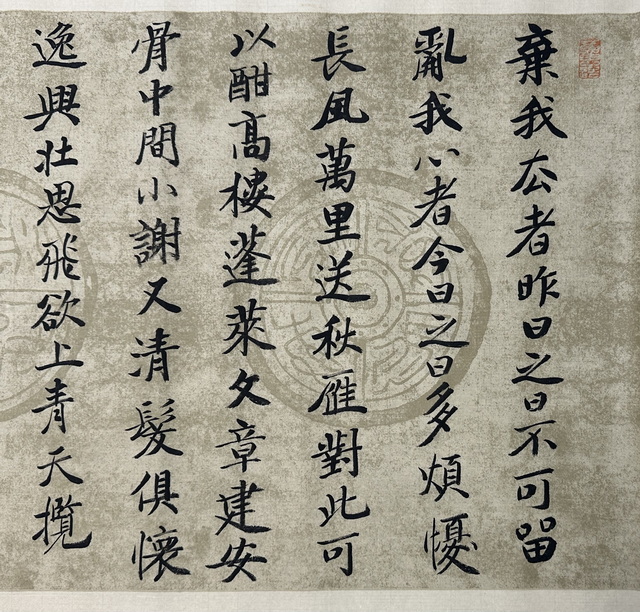 棄我厺者昨日之日不可留
亂我心者今日之日多煩懮
長風萬里送秋雁對此可
以酣高樓蓬萊文章建安
骨中間小謝又清髮俱懷
逸興壯思飛欲上青天攬